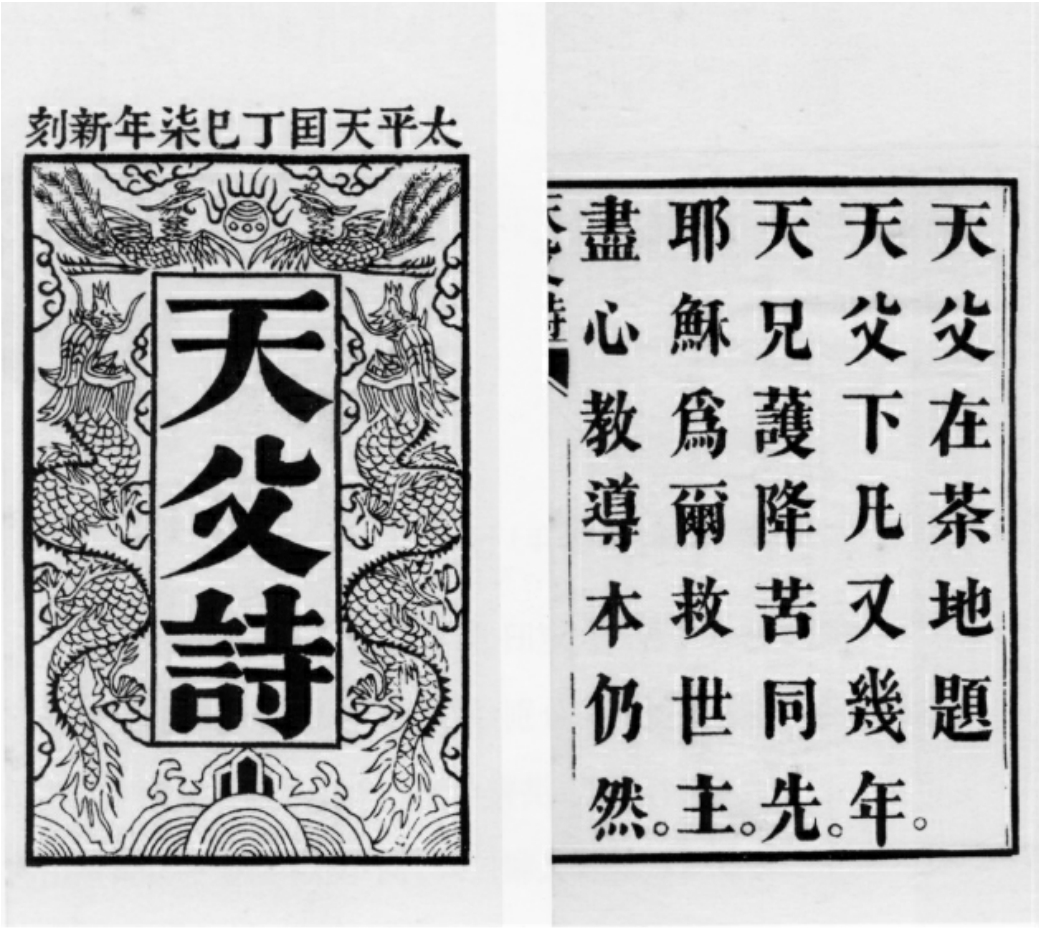 太平天囯丁巳柒年新刻
天父詩
天父在茶地題
天父下凡又幾年。
天兄護降苦同先。
耶穌爲爾救世主。
盡心教導本仍然。
天父詩